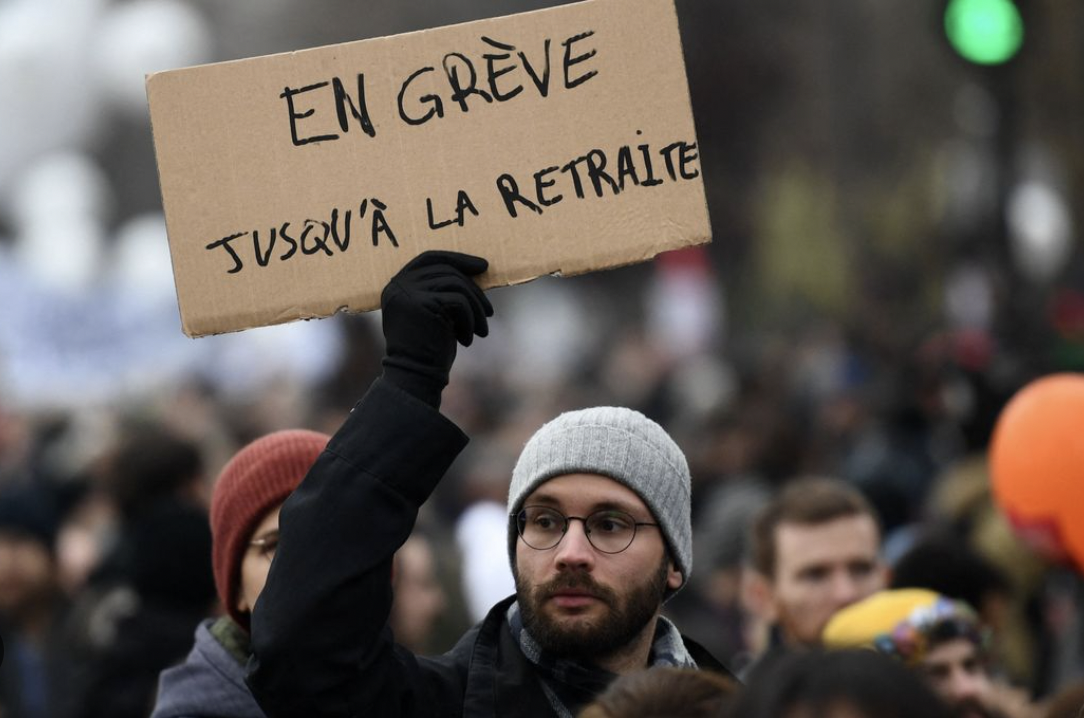 EN GRÈVE
JUSQU'À LA RETRAITE